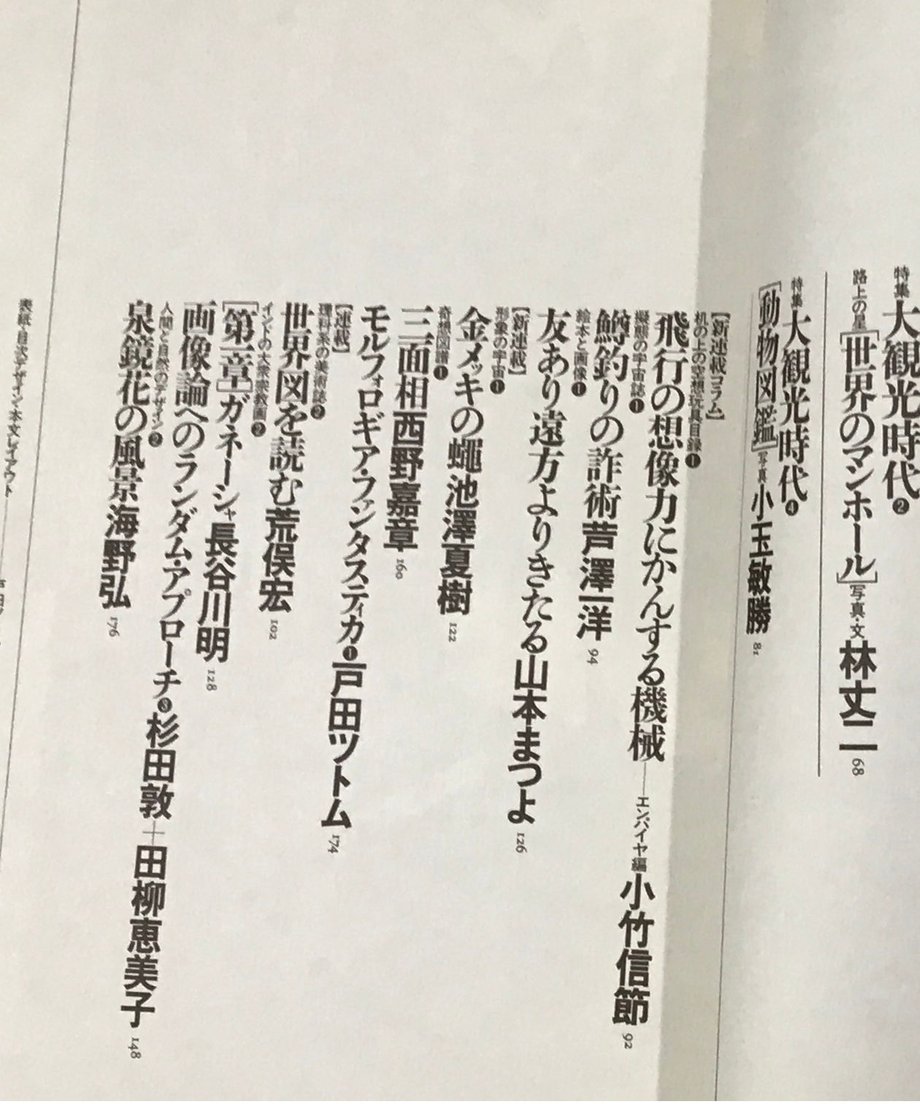 特集大観光時代❷
路上の星[世界のマンホール]写真・文林丈二68
特集大観光時代❹
[動物図鑑]写真小玉敏勝81
【新連載コラム】
机の上の空想玩具目録❶
飛行の想像力にかんする機械──エンパイヤ編小竹信節92
擬態の宇宙誌❶
鱒釣りの詐術芦澤一洋94
絵本と画像❶
友あり遠方よりきたる山本まつよ126
【新連載】
形象の宇宙❶
金メッキの蠅池澤夏樹122
奇想図譜❶
三面相西野嘉章160
モルフォロギア・ファンタスティカ❶戸田ツトム174
【連載】
理科系の美術誌❷
世界図を読む荒俣宏102
インドの大衆宗教画❷
[第一章]ガネーシャ長谷川明128
画像論へのランダム・アプローチ❸杉田敦+田柳恵美子148
人間と自然のデザイン❷
泉鏡花の風景海野弘176
表紙・目次デザイン・本文レイアウト